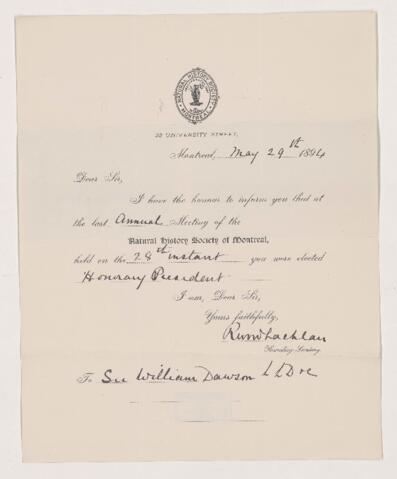 NATURAL HISTORY SOCIETY
MONTREAL
32 UNIVERSITY STREET,
Montreal, May 29th 1894
Dear Sir,
I have the honour to inform you that at
the last Annual Meeting of the
Natural History Society of Montreal,
held on the 28th instant you were elected
Honorary President
I am, Dear Sir,
Yours faithfully,
RWMcLachlan
Recording Secretary.
To Sir William Dawson LLD &c